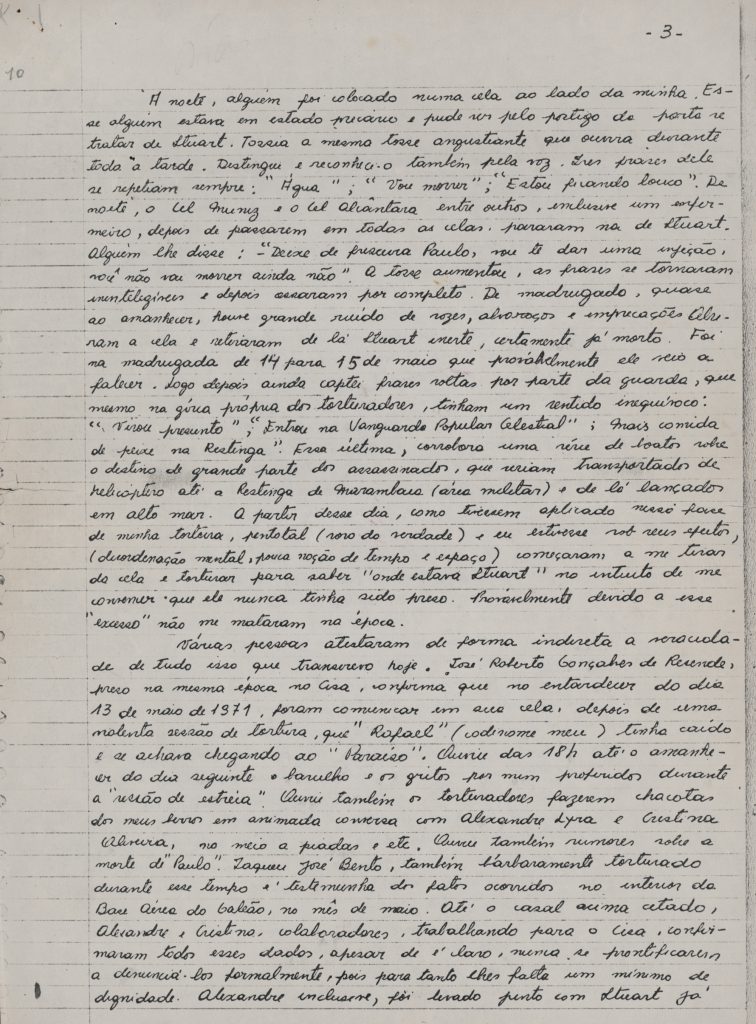 - 3 -
10
À noite, alguém foi colocado numa cela ao lado da minha. Es-
se alguém estava em estado precário e pude ver pelo postigo da porta se
tratar de Stuart. Tossia a mesma tosse angustiante que ouvira durante
toda a tarde. Distingui e reconheci-o também pela voz. Tres frases dele
se repetiam sempre: "Água"; "Vou morrer"; "Estou ficando louco". De
noite, o Cel Muniz e o Cel Alcântara entre outros, inclusive um enfer-
meiro, depois de passarem em todas as celas, pararam na de Stuart.
Alguém lhe disse: -"Deixe de frescura Paulo, vou te dar uma injeção,
você não vai morrer ainda não". A tosse aumentou, as frases se tornaram
inintelegíveis e depois cessaram por completo. De madrugada, quase
ao amanhecer, houve grande ruído de vozes, alvoroços e imprecações. Abri-
ram a cela e retiraram de lá Stuart inerte, certamente já morto. Foi
na madrugada de 14 para 15 de maio que provavelmente ele veio a
falecer. Logo depois ainda captei frases soltas por parte da guarda, que
mesmo na gíria própria dos torturadores, tinham um sentido inequívoco:
"Virou presunto"; "Entrou na Vanguarda Popular Celestial"; "Mais comida
de peixe na Restinga". Essa última, corrobora uma série de boatos sobre
o destino de grande parte dos assassinados, que seriam transportados de
helicóptero até a Restinga de Marambaia (área militar) e de lá lançados
em alto mar. A partir desse dia, como tivessem aplicado nessa fase
de minha tortura, pentotal (soro da verdade) e eu estivesse sob seus efeitos,
(descordenação mental, pouca noção de tempo e espaço) começaram a me tirar
da cela e torturar para saber "onde estava Stuart" no intuito de me
convencer que ele nunca tinha sido preso. Provavelmente devido a esse
"excesso" não me mataram na época.
Várias pessoas atestaram de forma indireta a veracida-
de de tudo isso que transcrevo hoje. José Roberto Gonçalves de Resende,
preso na mesma época no Cisa, confirma que no entardecer do dia
13 de maio de 1971, foram comunicar em sua cela, depois de uma
violenta sessão de tortura, que "Rafael" (codinome meu) tinha caído
e se achava chegando ao "Paraíso". Ouviu das 18h até o amanhe-
cer do dia seguinte o barulho e os gritos por mim proferidos durante
a "sessão de estréia". Ouviu também os torturadores fazerem chacotas
dos meus berros em animada conversa com Alexandre Lyra e Cristina
Oliveira, no meio a piadas e etc. Ouviu também rumores sobre a
morte de "Paulo". Zaqueu José Bento, também bárbaramente torturado
durante esse tempo é testemunha dos fatos ocorridos no interior da
Base Aérea do Galeão, no mês de maio. Até o casal acima citado,
Alexandre e Cristina, colaboradores, trabalhando para o Cisa, confir-
maram todos esses dados, apesar de é claro, nunca se prontificarem
a denunciá-los formalmente, pois para tanto lhes falta um mínimo de
dignidade. Alexandre inclusive, foi levado junto com Stuart já